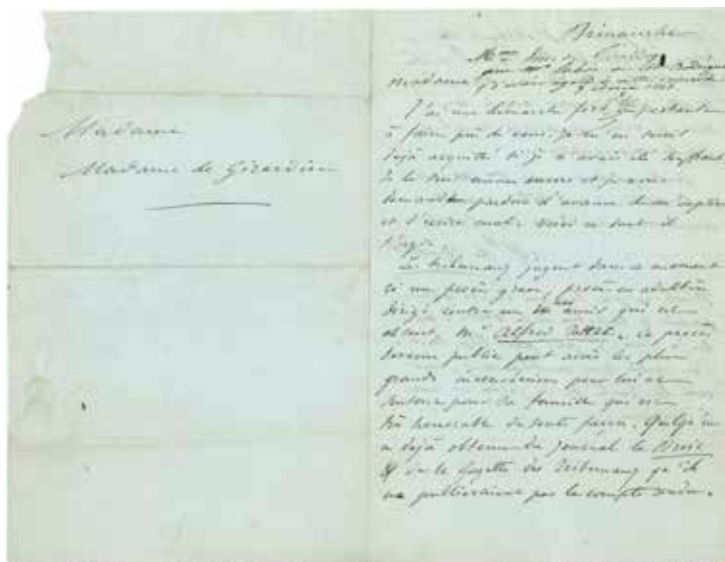 Madame
Madame de Girardin
Dimanche
Madame
J'ai une démarche fort importante
à faire près de vous. Je m'en serais
déjà acquitté si je n'avais été souffrant
Je le suis encore et je vous
demande pardon d'avance
et d'écrire mal. Voici ce dont il
s'agit.
Les tribunaux jugent dans ce moment
ci un procès grave, procès en adultère
dirigé contre un de mes amis qui est
absent, Mr Alfred Tattet. Ce procès
devenu public peut avoir les plus
grands inconvénients pour lui et
surtout pour sa famille qui est
très honorable de toute façon. Quelqu'un
a déjà obtenu du journal le Droit
& de la Gazette des Tribunaux qu'ils
ne publieraient pas le compte rendu.